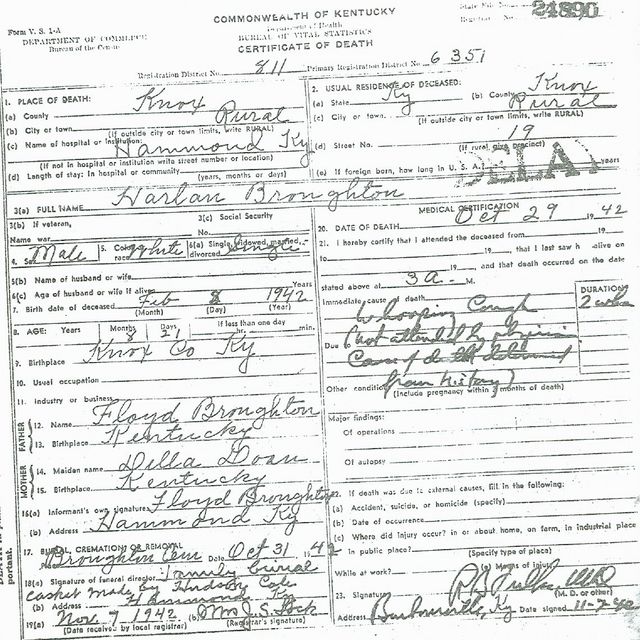 COMMONWEALTH OF KENTUCKY
State File No. 24890
Form V. S. 1-A
Department of Health
DEPARTMENT OF COMMERCE
BUREAU OF VITAL STATISTICS
Registrar No.
Bureau of the Census
CERTIFICATE OF DEATH
Registration District No. 811 Primary Registration District No. 6351
1. PLACE OF DEATH:
(a) County Knox
(b) City or town Rural
(If outside city or town limits, write RURAL)
(c) Name of hospital or institution: Hammond Ky
(If not in hospital or institution write street number or location)
(d) Length of stay: In hospital or community (years, months or days)
2. USUAL RESIDENCE OF DECEASED:
(a) State Ky (b) County Knox
(c) City or town Rural
(If outside city or town limits, write RURAL)
(d) Street No. 19
(If rural give precinct)
(e) If foreign born, how long in U. S. A. years
DELA
3(a) FULL NAME Harlan Broughton
3(b) If veteran, 3(c) Social Security
Name war No.
4. Sex Male 5. Color or race White 6(a) Single, widowed, married, divorced Single
6(b) Name of husband or wife
6(c) Age of husband or wife if alive Years
7. Birth date of deceased Feb 8 1942
(Month) (Day) (Year)
8. AGE: Years Months Days If less than one day
8 21 hr. min.
9. Birthplace Knox Co Ky
10. Usual occupation
11. Industry or business
FATHER
12. Name Floyd Broughton
13. Birthplace Kentucky
MOTHER
14. Maiden name Della Doan
15. Birthplace Kentucky
16(a) Informant's own signature Floyd Broughton
(b) Address Hammond Ky
17. BURIAL, CREMATION OR REMOVAL
Broughton Cem Date Oct 31 1942
18(a) Signature of funeral director Family burial
casket made by Hudson Cole
(b) Address Hammond Ky
19(a) Nov 7 1942 (b) Mrs J. S.
(Date received by local registrar) (Registrar's signature)
MEDICAL CERTIFICATION
20. DATE OF DEATH Oct 29 1942
21. I hereby certify that I attended the deceased from
19 , to 19 , that I last saw h alive on
19 , and that death occurred on the date
stated above at 3 a M.
Immediate cause of death DURATION
Whooping Cough 2 wks
Due to (not attended by physician
Cause of death determined
from history)
Other conditions
(Include pregnancy within 3 months of death)
Major findings:
Of operations
Of autopsy
22. If death was due to external causes, fill in the following:
(a) Accident, suicide, or homicide (specify)
(b) Date of occurrence
(c) Where did injury occur? in or about home, on farm, in industrial place
in public place?
(Specify type of place)
While at work? (e) Means of injury
23. Signature MD
(M. D. or other)
Address Barbourville, Ky Date signed 11-2-42
portant.